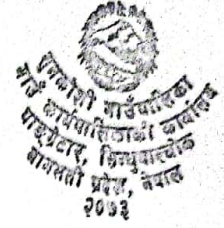 सुनकोशी गाउँपालिका
गाउँ कार्यपालिकाको कार्यालय
पाङ्ग्रेटार, सिन्धुपाल्चोक
बागमती प्रदेश, नेपाल
२०७३